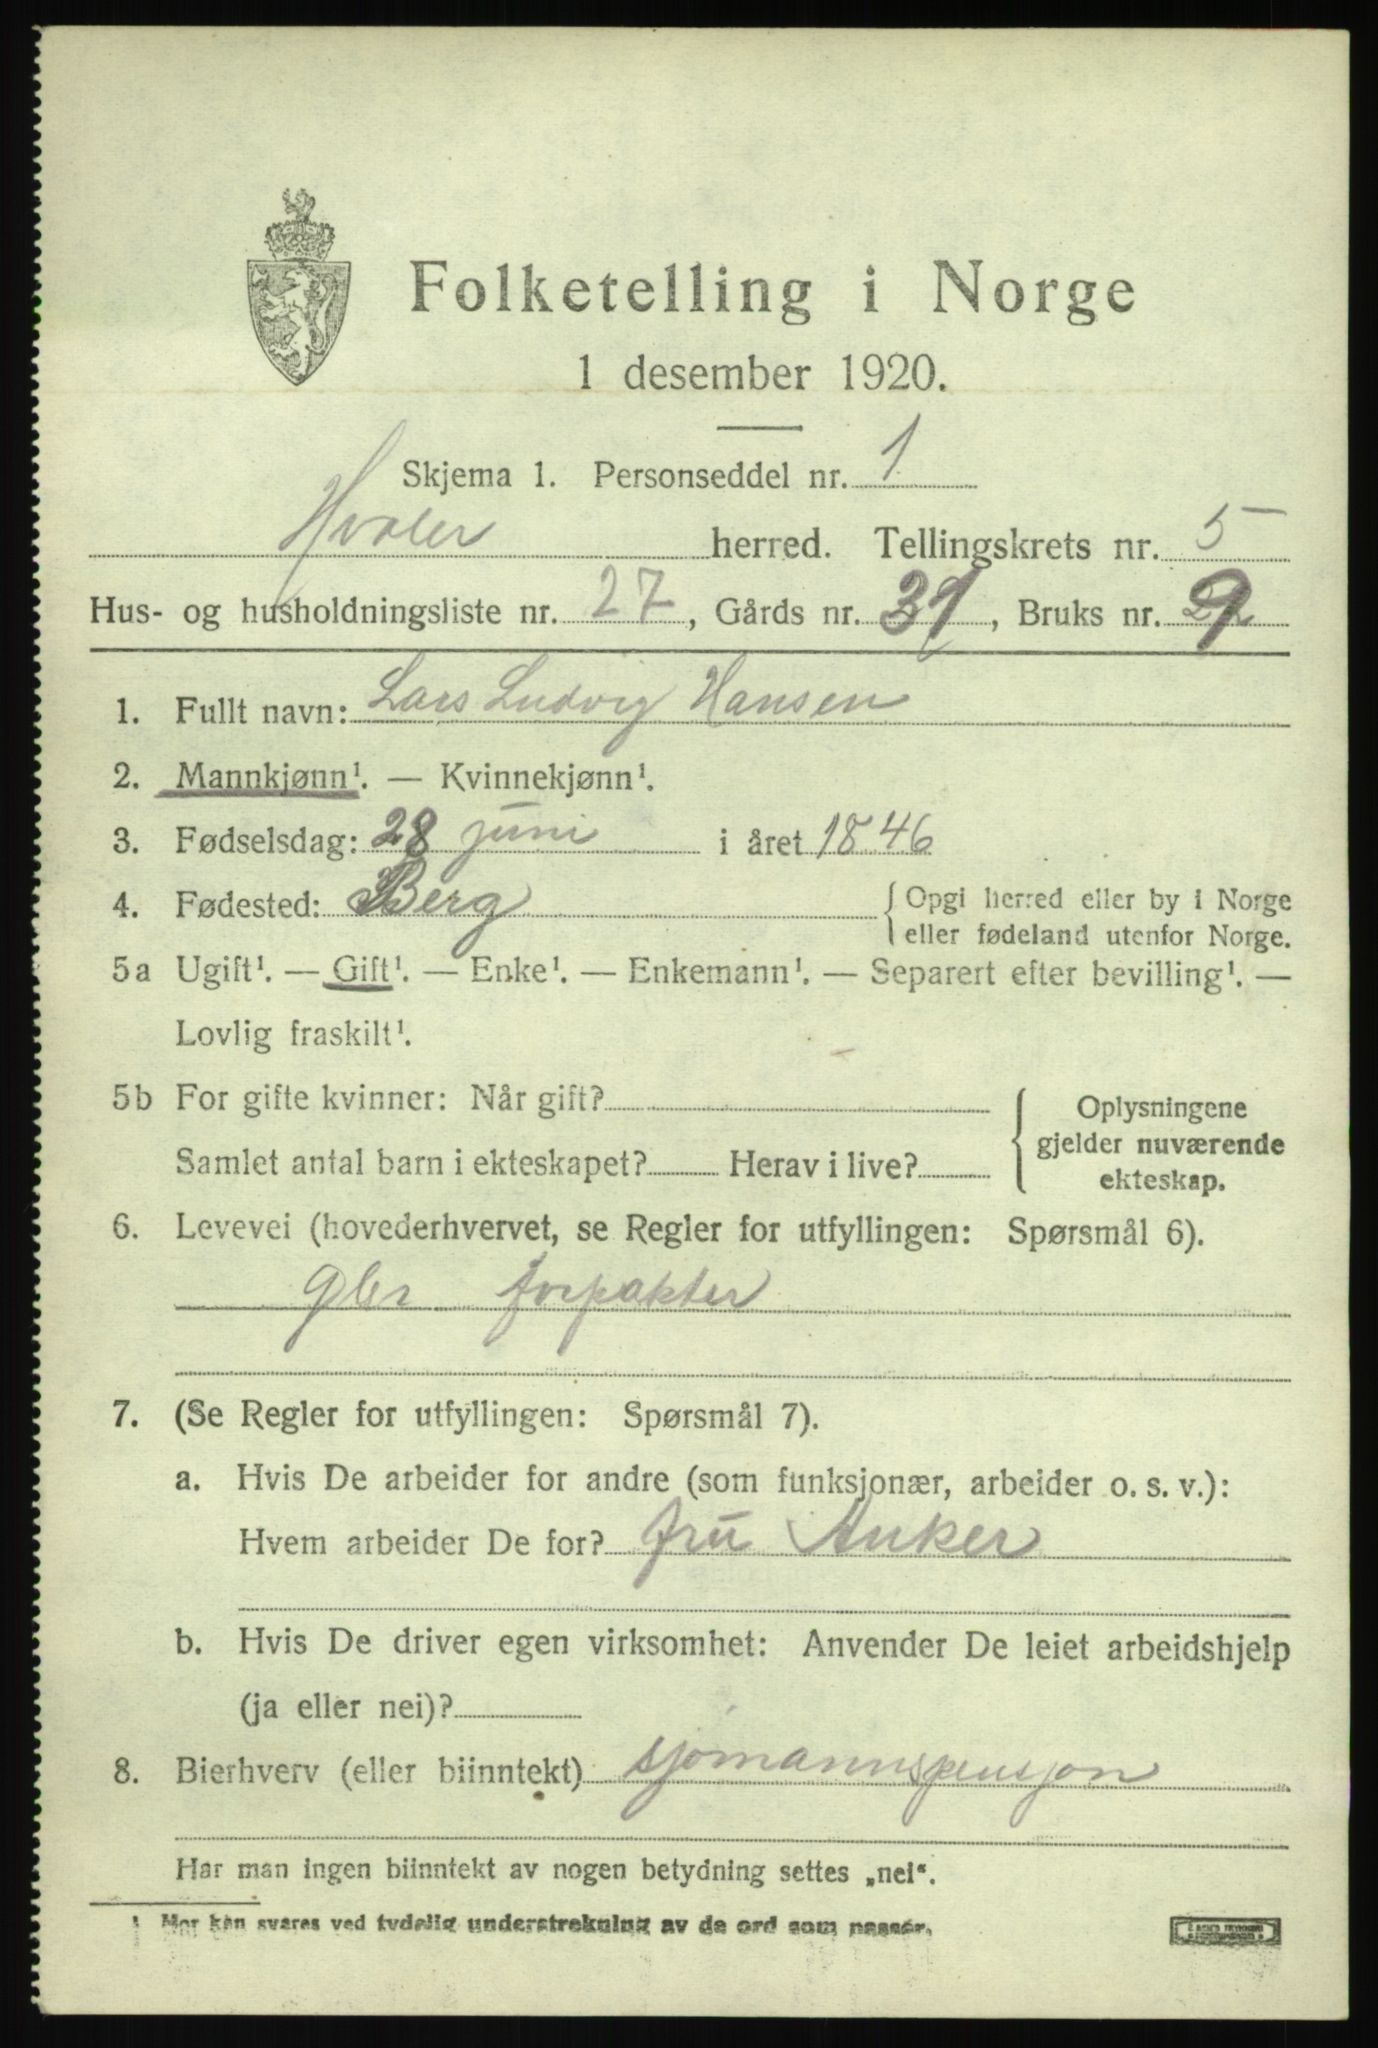 Folketelling i Norge
1 desember 1920.
Skjema 1. Personseddel nr. 1
Hvaler herred. Tellingskrets nr. 5
Hus- og husholdningsliste nr. 27, Gårds nr. 31, Bruks nr. 9
1. Fullt navn: Lars Ludvig Hansen
2. Mannkjønn¹. — Kvinnekjønn¹.
3. Fødselsdag: 28 juni i året 1846
4. Fødested: Berg { Opgi herred eller by i Norge
eller fødeland utenfor Norge.
5a Ugift¹. — Gift¹. — Enke¹. — Enkemann¹. — Separert efter bevilling¹. —
Lovlig fraskilt¹.
5b For gifte kvinner: Når gift?
Samlet antal barn i ekteskapet? Herav i live?
Oplysningene
gjelder nuværende
ekteskap.
6. Levevei (hovederhvervet, se Regler for utfyllingen: Spørsmål 6).
forpakter
7. (Se Regler for utfyllingen: Spørsmål 7).
a. Hvis De arbeider for andre (som funksjonær, arbeider o. s. v.):
Hvem arbeider De for? fru Anker
b. Hvis De driver egen virksomhet: Anvender De leiet arbeidshjelp
(ja eller nei)?
8. Bierhverv (eller biinntekt) sjømannspensjon
Har man ingen biinntekt av nogen betydning settes „nei“.
¹ Mer kan svares ved tydelig understrekning av de ord som passer.